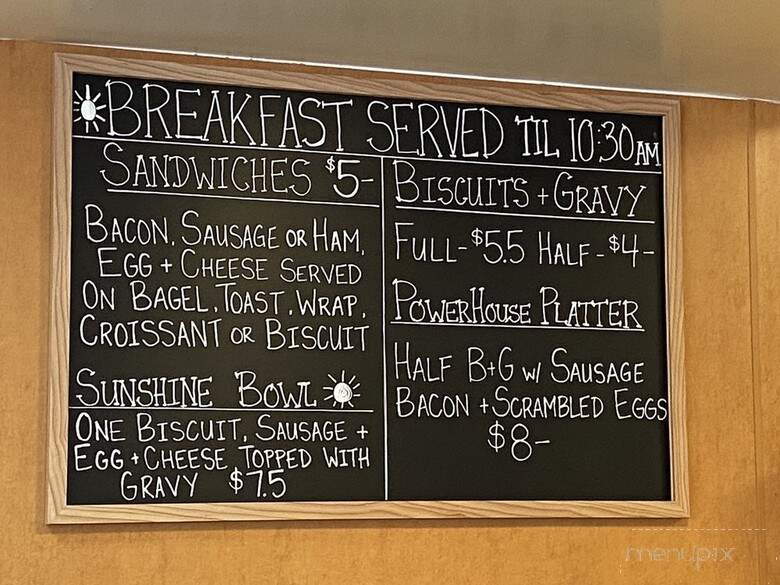 BREAKFAST SERVED TIL 10:30AM
SANDWICHES $5-
BACON, SAUSAGE OR HAM,
EGG + CHEESE SERVED
ON BAGEL, TOAST, WRAP,
CROISSANT OR BISCUIT
SUNSHINE BOWL
ONE BISCUIT, SAUSAGE +
EGG + CHEESE TOPPED WITH
GRAVY $7.5
BISCUITS + GRAVY
FULL-$5.5 HALF-$4-
POWERHOUSE PLATTER
HALF B+G W/ SAUSAGE
BACON + SCRAMBLED EGGS
$8-
menupix